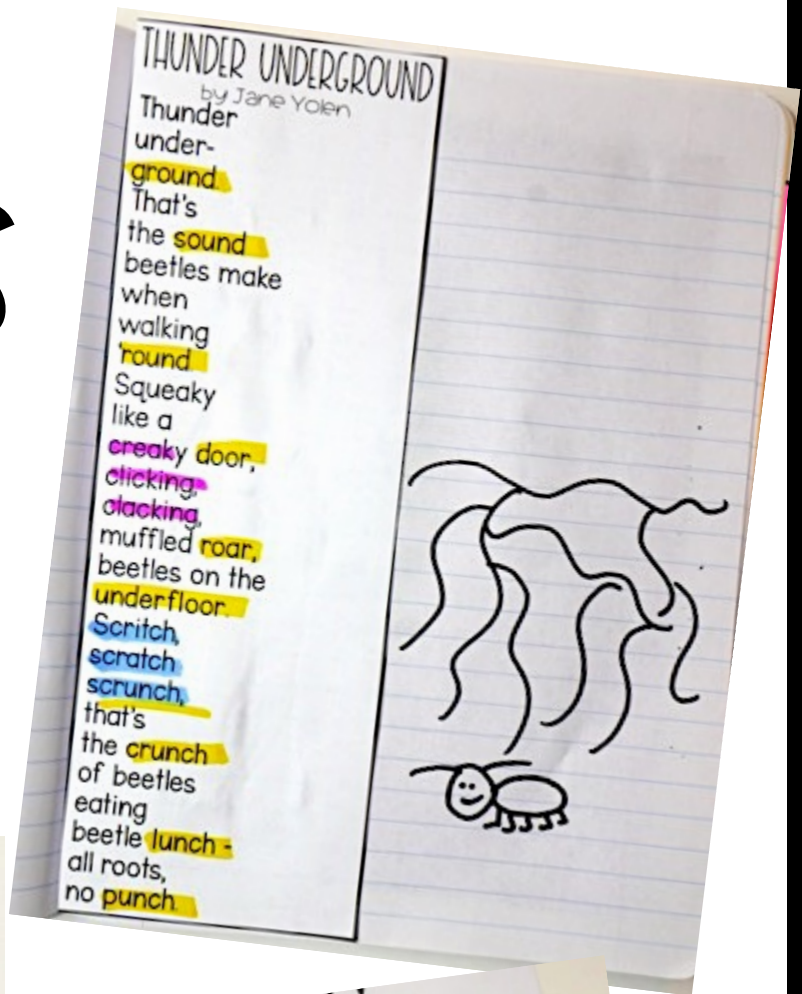 THUNDER UNDERGROUND
by Jane Yolen
Thunder
under-
ground.
That's
the sound
beetles make
when
walking
'round.
Squeaky
like a
creaky door,
clicking,
clacking,
muffled roar,
beetles on the
underfloor.
Scritch,
scratch
scrunch,
that's
the crunch
of beetles
eating
beetle lunch -
all roots,
no punch.